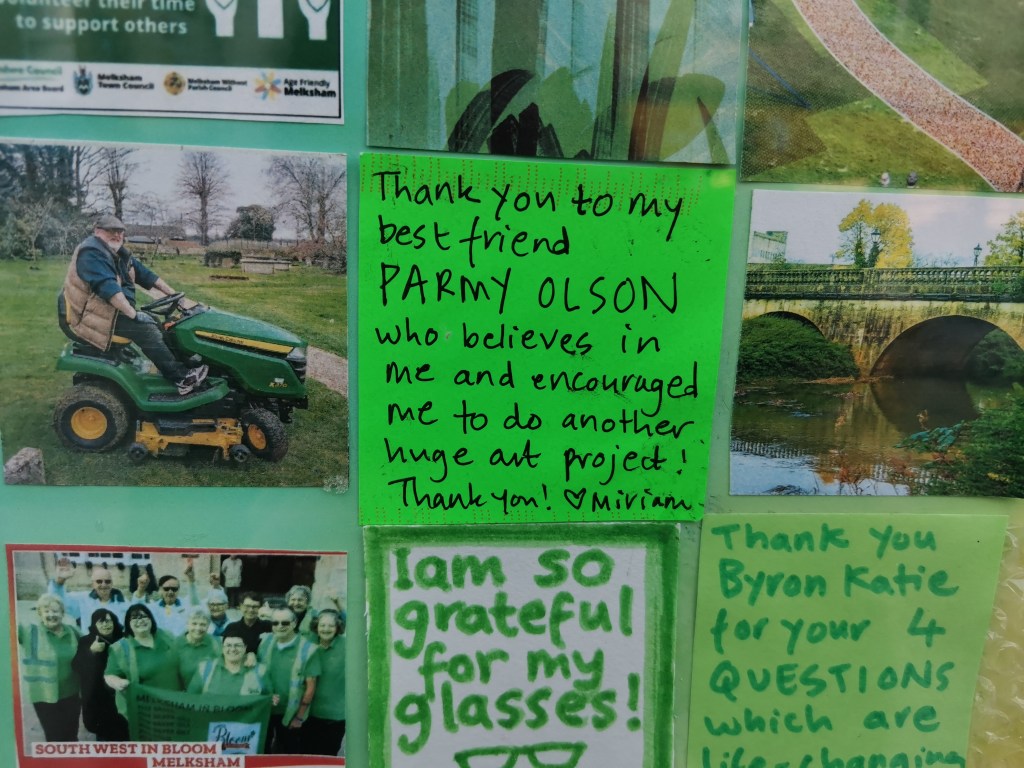 volunteer their time
to support others
Melksham
Town Council
Melksham Without
Parish Council
Age Friendly
Melksham
Thank you to my
best friend
PARMY OLSON
who believes in
me and encouraged
me to do another
huge art project!
Thank you! ♡ Miriam
MELKSHAM IN BLOOM
Bloom
SOUTH WEST IN BLOOM
MELKSHAM
I am so
grateful
for my
glasses!
Thank you
Byron Katie
for your 4
QUESTIONS
which are
life-changing